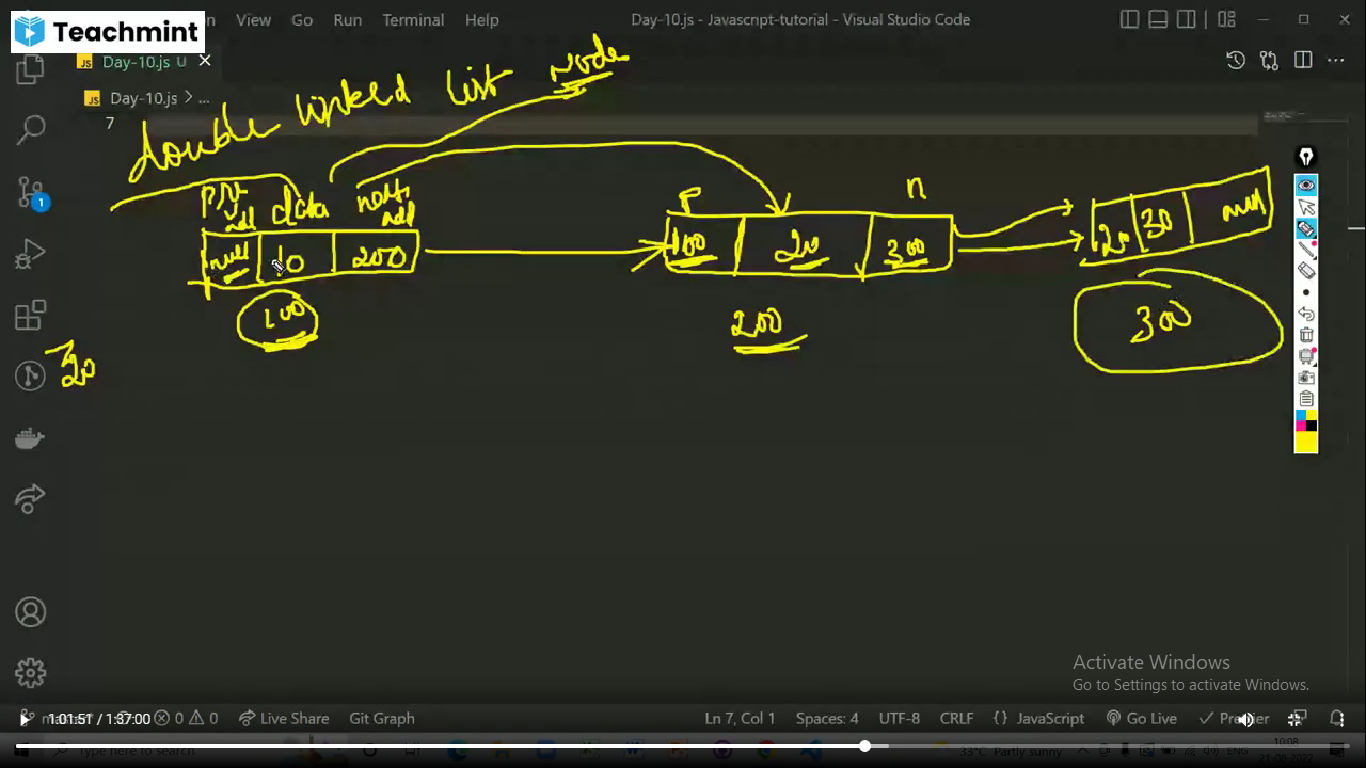 Teachmint
View Go Run Terminal Help
Day-10.js - Javascript-tutorial - Visual Studio Code
Day-10.js U
Day-10.js > ...
7
double linked list Node
data
P n
null 10 200
100 20 300
20 30 null
100
200
300
20
1
Activate Windows
Go to Settings to activate Windows.
1:01:51 / 1:37:00
0 0 Live Share Git Graph
Ln 7, Col 1 Spaces: 4 UTF-8 CRLF {} JavaScript Go Live
Type here to search
33°C Partly sunny ENG
10:08